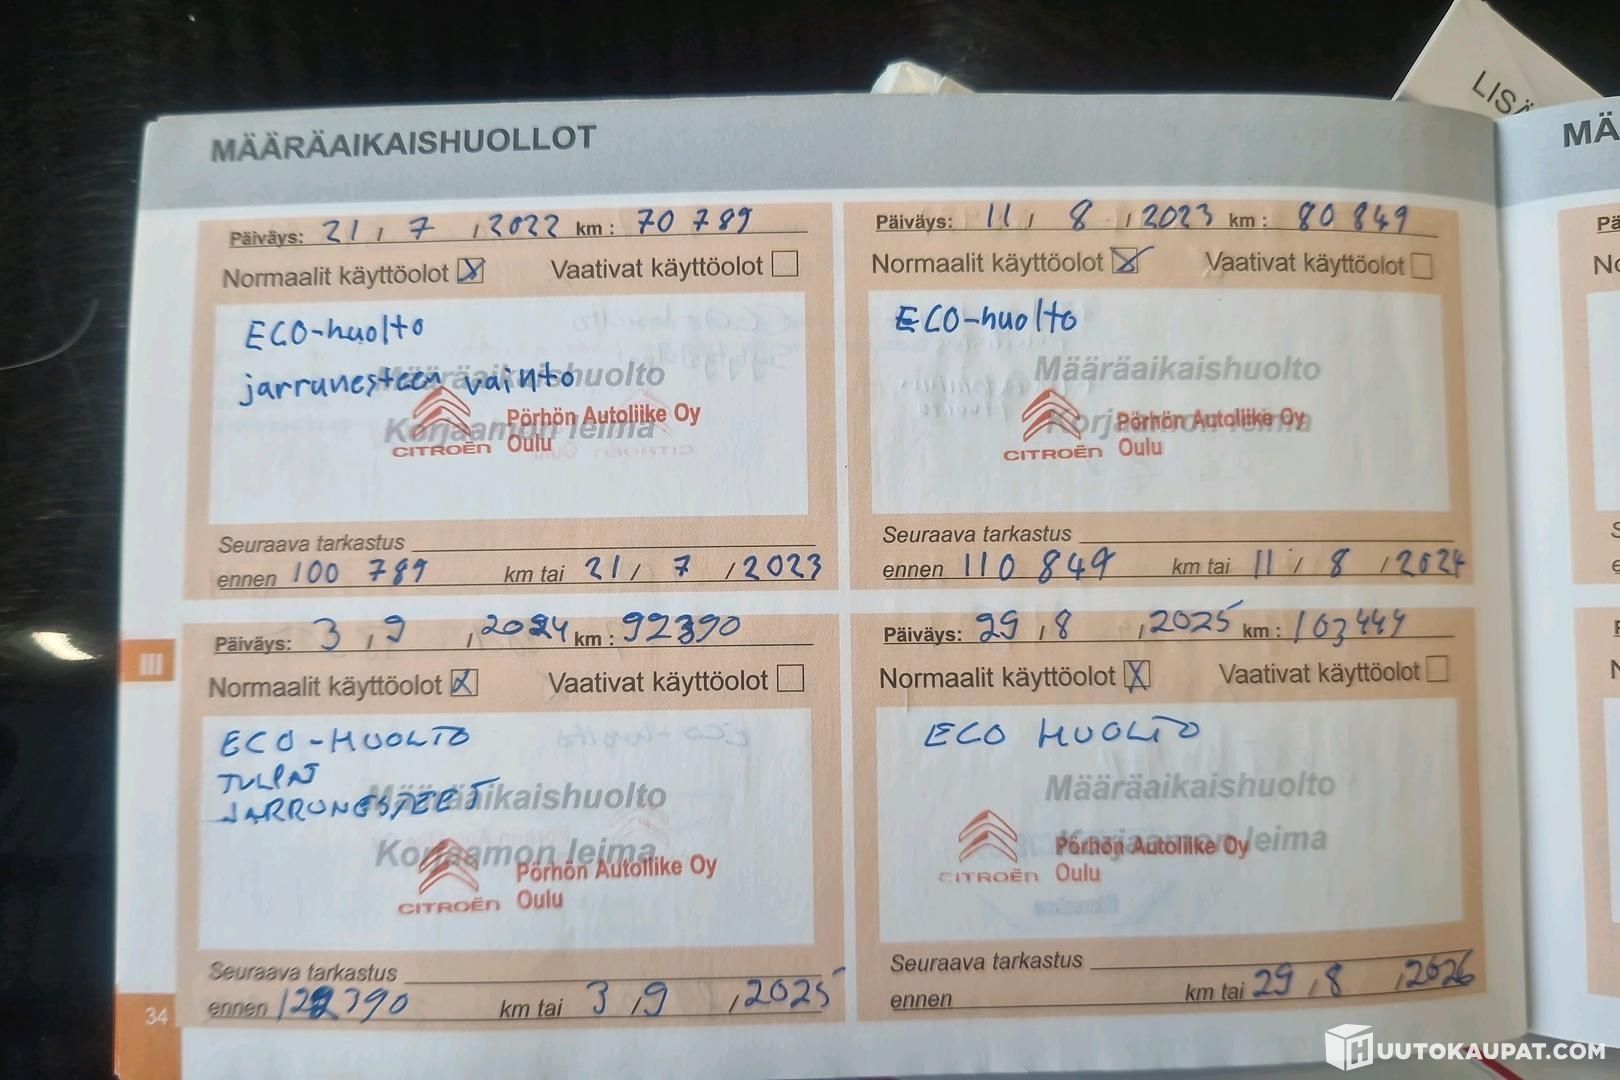 LISÄ
MÄÄRÄAIKAISHUOLLOT
MÄ
Päiväys: 21 / 7 / 2022 km : 70 789
Normaalit käyttöolot ☒ Vaativat käyttöolot ☐
ECO-huolto
jarrunesteen vaihto
Määräaikaishuolto
Korjaamon leima
Pörhön Autoliike Oy
CITROËN Oulu
Seuraava tarkastus
ennen 100 789 km tai 21 / 7 / 2023
Päiväys: 11 / 8 / 2023 km : 80 849
Normaalit käyttöolot ☒ Vaativat käyttöolot ☐
ECO-huolto
Määräaikaishuolto
Korjaamon leima
Pörhön Autoliike Oy
CITROËN Oulu
Seuraava tarkastus
ennen 110 849 km tai 11 / 8 / 2024
Päiväys: 3 / 9 / 2024 km : 92390
Normaalit käyttöolot ☒ Vaativat käyttöolot ☐
ECO-HUOLTO
TULPAT
JARRUNESTEET
Määräaikaishuolto
Korjaamon leima
Pörhön Autoliike Oy
CITROËN Oulu
Seuraava tarkastus
ennen 122390 km tai 3 / 9 / 2025
Päiväys: 29 / 8 / 2025 km : 103444
Normaalit käyttöolot ☒ Vaativat käyttöolot ☐
ECO HUOLTO
Määräaikaishuolto
Korjaamon leima
Pörhön Autoliike Oy
CITROËN Oulu
Seuraava tarkastus
ennen km tai 29 / 8 / 2026
III
34
HUUTOKAUPAT.COM